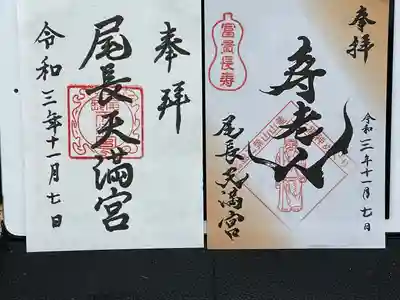 奉拝
尾長天満宮
令和三年十一月七日
奉拝
令和三年十一月七日
寿老人
富貴長寿
尾長天満宮